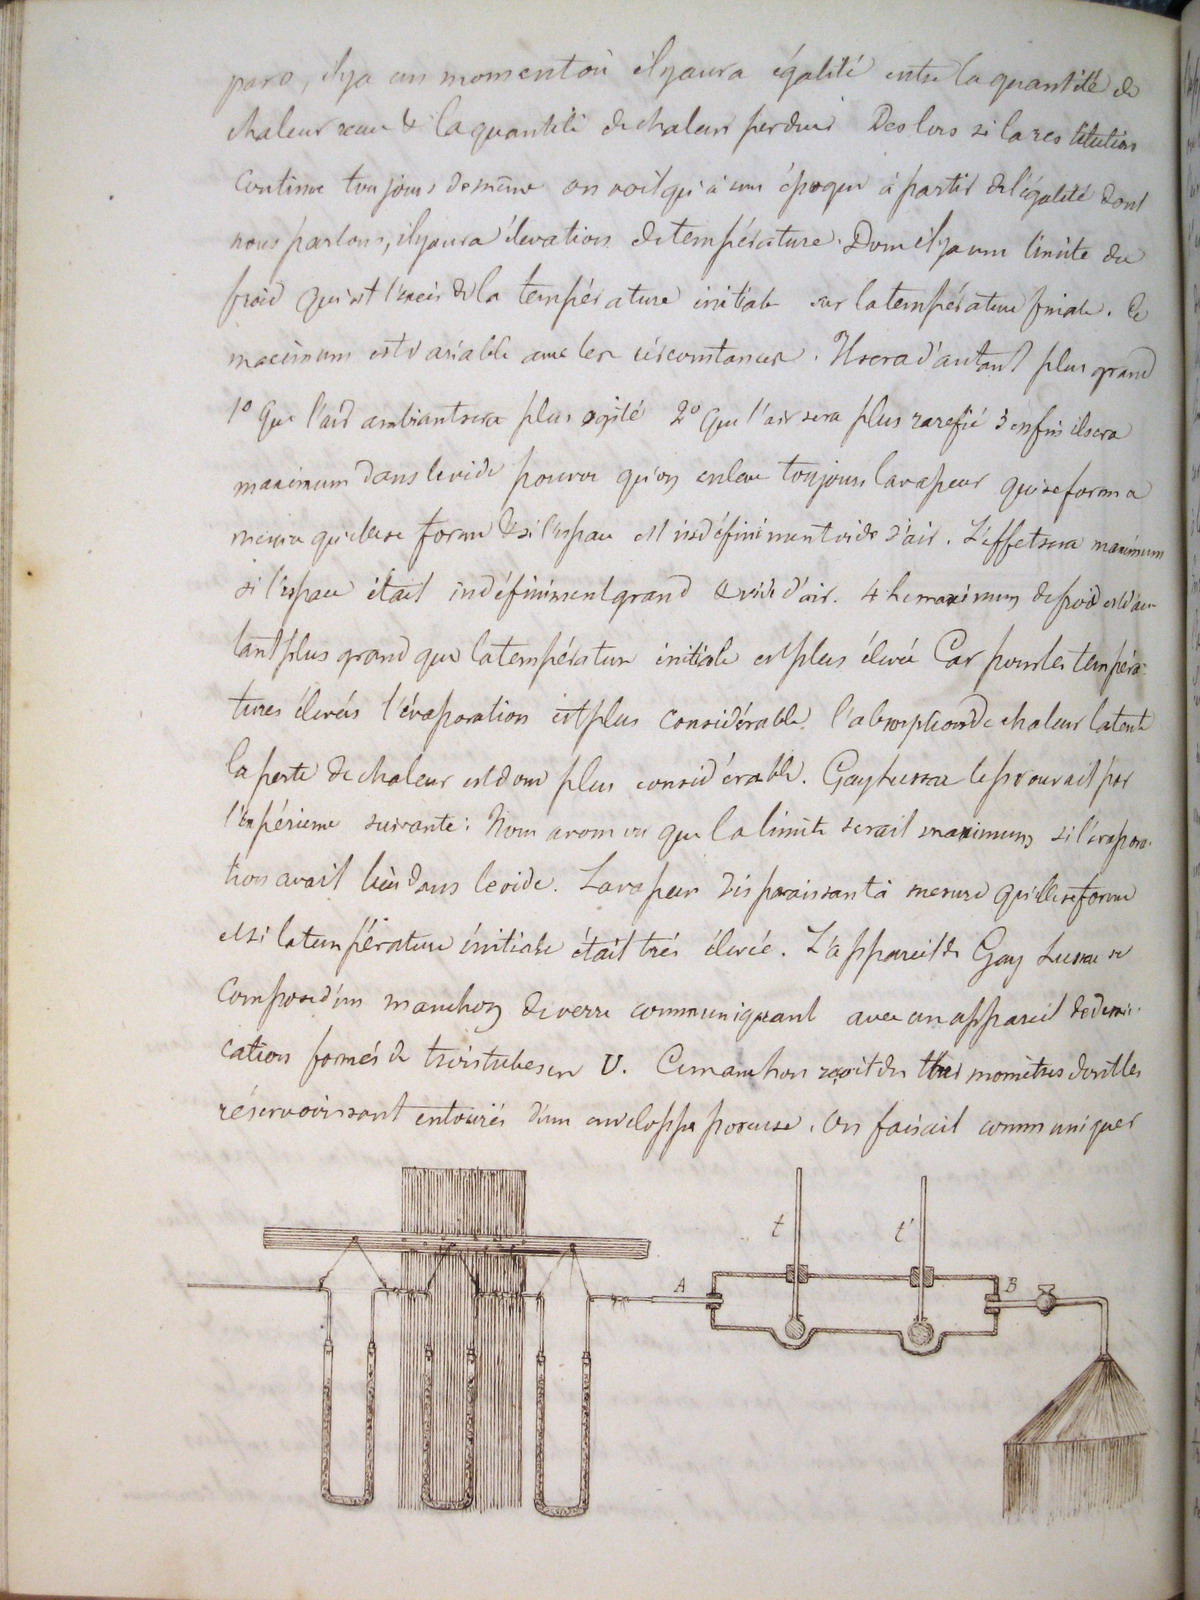 paro, il y a un moment où il y aura égalité entre la quantité de
chaleur reçue & la quantité de chaleur perdue Des lors si la restitution
continue toujours de même on voit qu'à une époque à partir de l'égalité dont
nous parlons, il y aura élevation de température. Donc il y a une limite du
froid qui est l'excés de la température initiale sur la température finale. Ce
maximum est variable avec les circonstances. Il sera d'autant plus grand
1º Que l'air ambiant sera plus agité 2º Que l'air sera plus rarefié 3 enfin il sera
maximum dans le vide pourvu qu'on enleve toujours la vapeur qui se forme a
mesure qu'elle se forme & si l'espace est indéfiniment vide d'air. L'effet sera maximum
si l'espace était indéfiniment grand & vide d'air. 4 Le maximum de froid est d'au
tant plus grand que la température initiale est plus élevée Car pour les tempéra-
tures élevées l'évaporation est plus considérable. l'absorption de chaleur latente
la perte de chaleur est donc plus considérable. Gay Lussac le prouvait par
l'expérience suivante: Nous avons vu que la limite serait maximum si l'évapora-
tion avait lieu dans le vide. La vapeur disparaissant à mesure qu'elle se forme
et si la température initiale était trés élevée. L'appareil de Gay Lussac se
compose d'un manchon de verre communiquant avec un appareil de dessic-
cation formés de trois tubes en U. Ce manchon reçoit des thermomètres dont les
réservoirs sont entourés d'une enveloppe poreuse. On faisait communiquer
t t'
A B